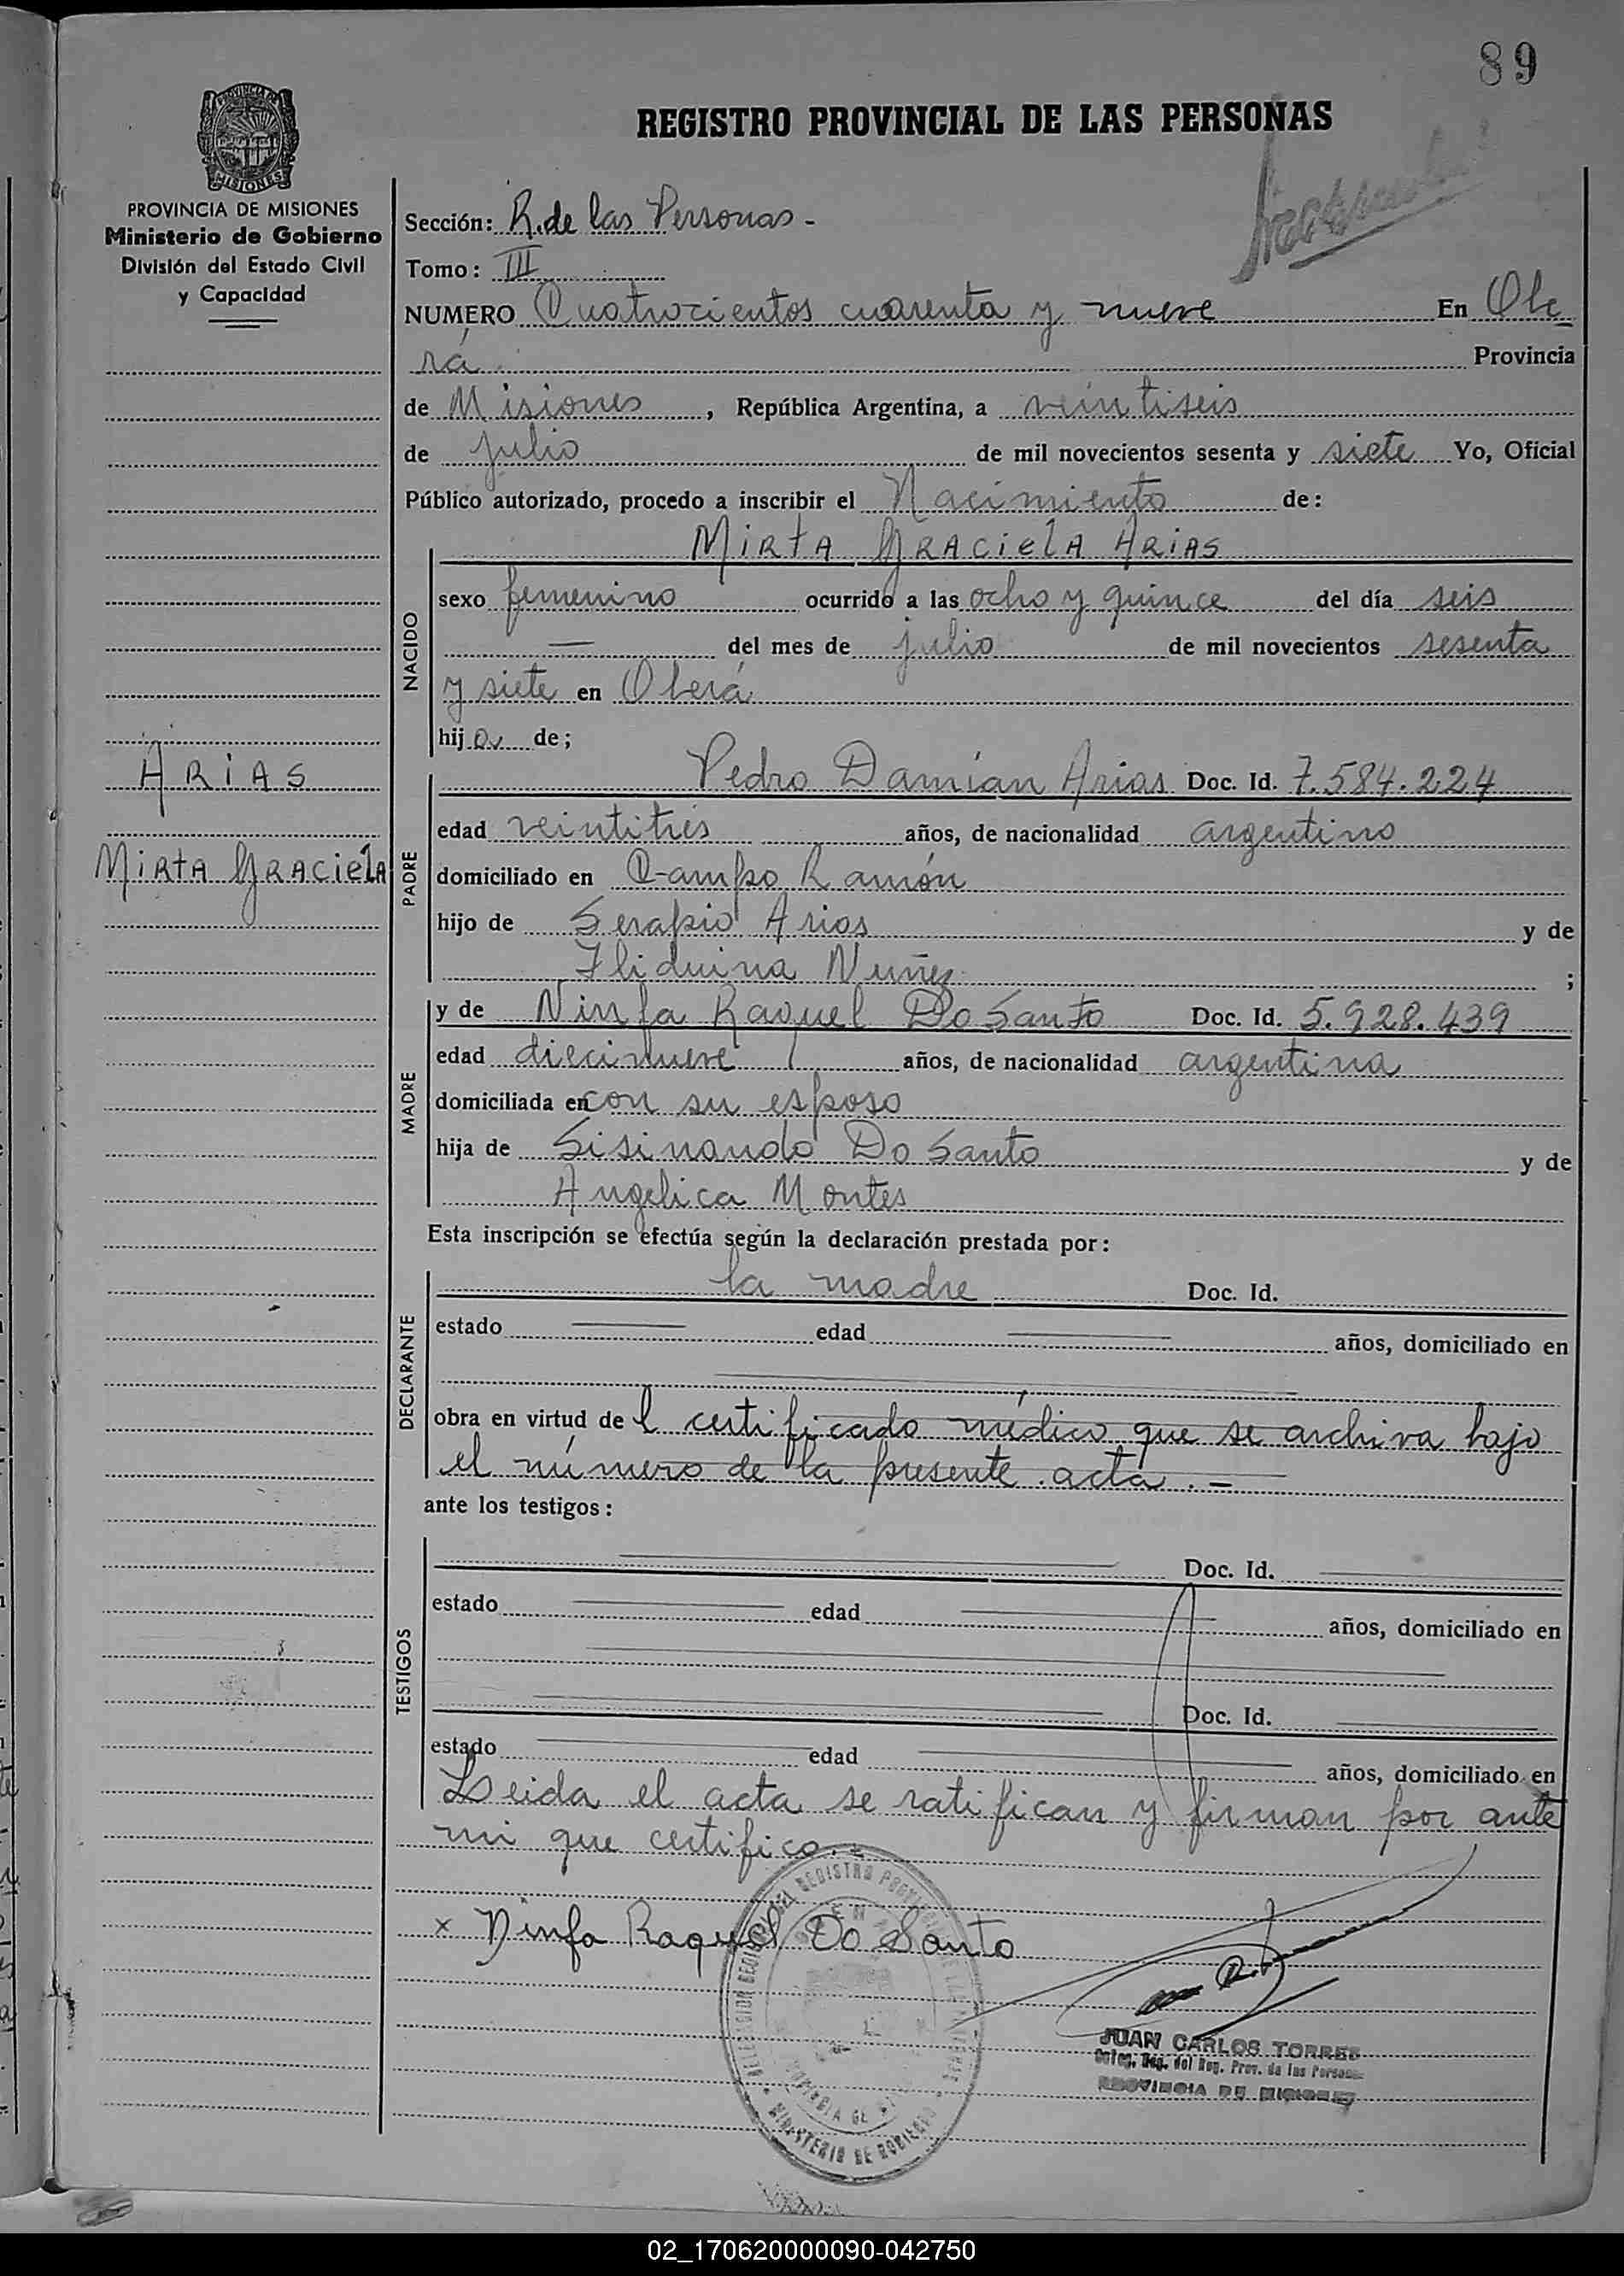 89
REGISTRO PROVINCIAL DE LAS PERSONAS
PROVINCIA DE
MISIONES
PROVINCIA DE MISIONES
Ministerio de Gobierno
División del Estado Civil
y Capacidad
Sección: R. de las Personas -
Tomo: III
NUMERO Cuatrocientos cuarenta y nueve En Obe_
rá Provincia
de Misiones, República Argentina, a veintiseis
de julio de mil novecientos sesenta y siete Yo, Oficial
Público autorizado, procedo a inscribir el Nacimiento de:
MiRtA GRACielA ARiAS
NACIDO
sexo femenino ocurrido a las ocho y quince del día seis
— del mes de julio de mil novecientos sesenta
y siete en Oberá
hija de;
ARiAS
MiRtA GRACielA
PADRE
Pedro Damián Arias Doc. Id. 7.584.224
edad veintitrés años, de nacionalidad argentino
domiciliado en Campo Ramón
hijo de Serapio Arias y de
Iliduina Nuñez ;
MADRE
y de Ninfa Raquel Do Santo Doc. Id. 5.928.439
edad diecinueve años, de nacionalidad argentina
domiciliada en con su esposo
hija de Sisinando Do Santo y de
Angelica Montes
Esta inscripción se efectúa según la declaración prestada por:
DECLARANTE
la madre Doc. Id.
estado edad años, domiciliado en
obra en virtud de l certificado médico que se archiva bajo
el número de la presente acta. -
ante los testigos:
TESTIGOS
Doc. Id.
estado edad años, domiciliado en
Doc. Id.
estado edad años, domiciliado en
Leida el acta se ratifican y firman por ante
mi que certifico. -
x Ninfa Raquel Do Santo
MINISTERIO DE GOBIERNO
JUAN CARLOS TORRES
Deleg. Reg. del Reg. Prov. de las Personas
PROVINCIA DE MISIONES
02_170620000090-042750